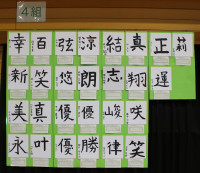 4組
幸百弦涼結真正莉
新笑悠朗志翔運
美真優優峻咲
永叶優勝律笑